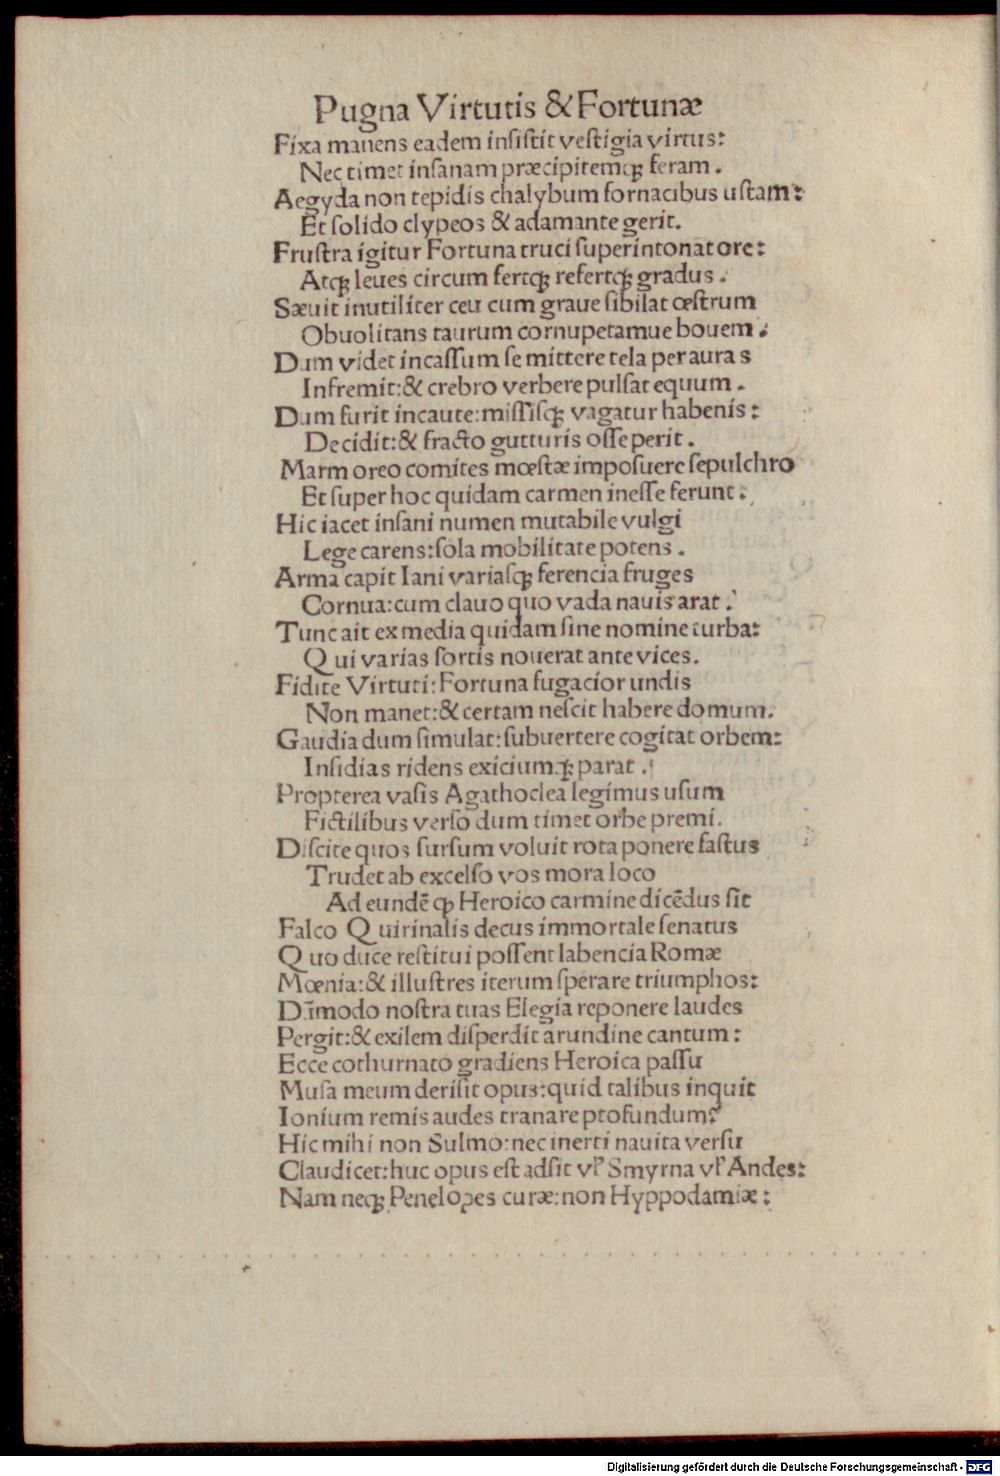 Pugna Virtutis & Fortunæ
Fixa manens eadem inſiſtit veſtigia virtus:
Nec timet inſanam præcipitemqꝫ feram.
Aegyda non tepidis chalybum fornacibus uſtam:
Et ſolido clypeos & adamante gerit.
Fruſtra igitur Fortuna truci ſuperintonat ore:
Atqꝫ leues circum fertqꝫ refertqꝫ gradus.
Sæuit inutiliter ceu cum graue ſibilat œſtrum
Obuolitans taurum cornupetamue bouem:
Dum videt incaſſum ſe mittere tela per auras
Infremit:& crebro verbere pulſat equum.
Dum furit incaute:miſſiſqꝫ vagatur habenis:
Decidit:& fracto gutturis oſſe perit.
Marmoreo comites mœſtæ impoſuere ſepulchro
Et ſuper hoc quidam carmen ineſſe ferunt:
Hic iacet inſani numen mutabile vulgi
Lege carens:ſola mobilitate potens.
Arma capit Iani variaſqꝫ ferencia fruges
Cornua:cum clauo quo vada nauis arat:
Tunc ait ex media quidam ſine nomine turba:
Qui varias ſortis nouerat ante vices.
Fidite Virtuti:Fortuna fugacior undis
Non manet:& certam neſcit habere domum.
Gaudia dum ſimulat:ſubuertere cogitat orbem:
Inſidias ridens exiciumqꝫ parat.
Propterea vaſis Agathoclea legimus uſum
Fictilibus verſo dum timet orbe premi.
Diſcite quos ſurſum voluit rota ponere faſtus
Trudet ab excelſo vos mora loco
Ad eundē qꝫ Heroico carmine dicēdus ſit
Falco Quirinalis decus immortale ſenatus
Quo duce reſtitui poſſent labencia Romæ
Mœnia:& illuſtres iterum ſperare triumphos:
Dūmodo noſtra tuas Elegia reponere laudes
Pergit:& exilem diſperdit arundine cantum:
Ecce cothurnato gradiens Heroica paſſu
Muſa meum deriſit opus:quid talibus inquit
Ionium remis audes tranare profundum?
Hic mihi non Sulmo:nec inerti nauita verſu
Claudicet:huc opus eſt adſit vꝉ Smyrna vꝉ Andes:
Nam neqꝫ Penelopes curæ:non Hyppodamiæ:
Digitalisierung gefördert durch die Deutsche Forschungsgemeinschaft - DFG